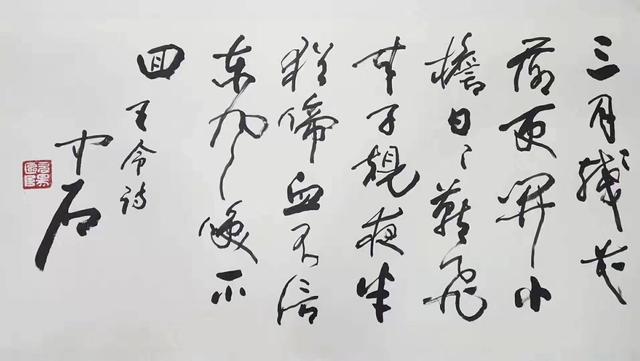 三月残花
落更开小
檐日日燕飞
来子规夜半
犹啼血不信
东风唤不
回
王令诗
中石